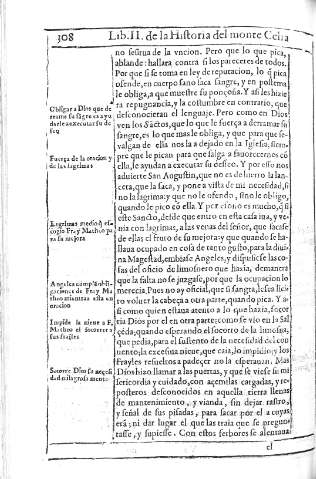 308 Lib. II. de la Historia del monte Celia
no se sirua de la vncion. Pero que lo que pica,
ablande: hallara contra si los pareceres de todos.
Por que si se toma en ley de reputacion, lo q̃ pica
ofende, en cuerpo sano saca sangre, y en postema
le obliga, a que muestre su ponçoña. Y assi les hiziera
repugnancia, y la costumbre en contrario, que
desconocieran el lenguaje. Pero como en Dios
ven los Sãctos, que lo que le fuerça a derramar su
sangre, es lo que mas le obliga, y que para que se
valgan de ella nos la a dejado en la Iglesia, siempre
que le pican para que salga a fauorecernos cõ
ella, le ayudan a executar su desseo. Y por esso nos
aduierte San Augustin, que no es de hierro la lança,
que la saca, y pone a vista de mi necesidad, si
no la lagrima: y que no le ofende, sino le obliga,
quando le pico cõ ella. Y por esso es mucho, q̃ si
este Sancto, desde que entro en esta casa iua, y venia
con lagrimas, a las venas del señor, que sacase
de ellas el fruto de su mejora: y que quando se hallaua
ocupado en cosa de tanto gusto, para la diuina
Magestad, embiase Angeles, y dispusiese las cosas
del oficio de limosnero que hazia, demanera
que la falta no se juzgase, por que la ocupacion lo
merecia. Pues no ay oficial, que si sangra, le sea licito
voluer la cabeça a otra parte, quando pica. Y assi
como quien estaua atento a lo que hazia, socorria
Dios por el en otra parte: como se vio en la Salçeda,
quando esperando el socorro de la limosna,
que pedia, para el sustento de la necesidad del conuento,
la excesiua nieue, que caia, lo impidio: y los
Frayles resueltos a padecer no la esperauan. Mas
Dios hizo llamar a las puertas, y que se viese su misericordia
y cuidado, con açemilas cargadas, y reposteros
desconocidos en aquella tierra llenas
de mantenimiento, y vianda, sin dejar rastro,
y señal de sus pisadas, para sacar por el a cuyas
erã; ni dar lugar el que las traia que se preguntasse,
y supiesse. Con estos ferbores se alentaua
el
Obligar a Dios que derrame
su sãgre es ayudarle
a executar su desseo
Fuerça de la oracion y
de las lagrimas
Lagrimas medio q̃ escogio
Fr. y Matheo para
su mejora
Angeles
Impide la nieue a F.
Matheo el socorro a
sus frayles
Socorre Dios su necesidad
milagrosamente